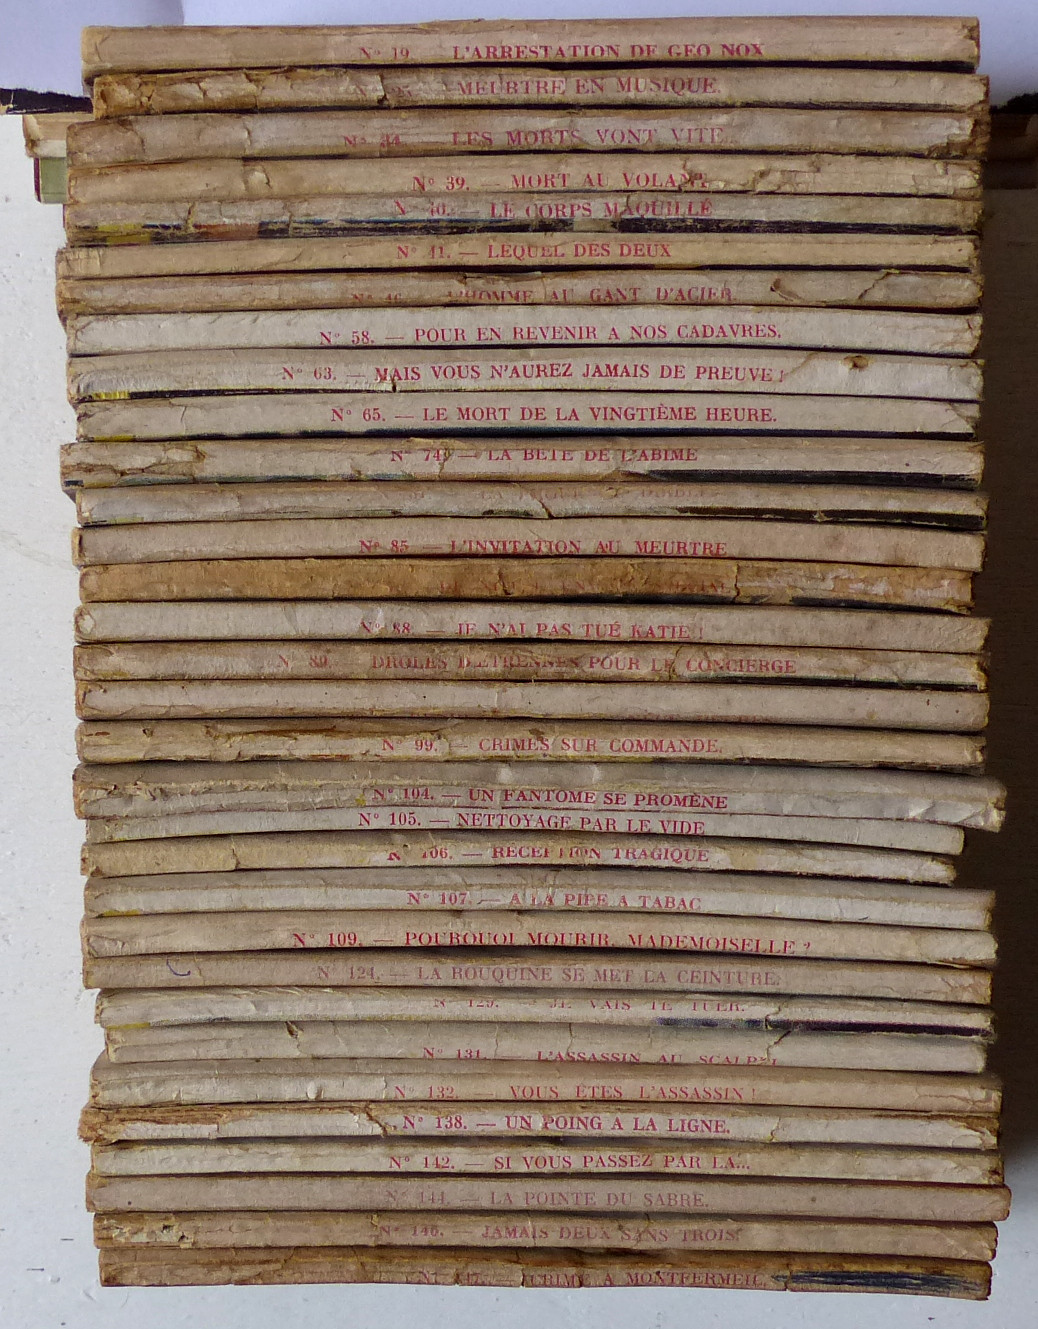 N° 19. L'ARRESTATION DE GEO NOX
MEURTRE EN MUSIQUE.
N° 34. LES MORTS VONT VITE
N° 39. — MORT AU VOLANT
N° 40. — LE CORPS MAQUILLÉ
N° 41. — LEQUEL DES DEUX
N° 46. L'HOMME AU GANT D'ACIER.
N° 58. — POUR EN REVENIR A NOS CADAVRES.
N° 63. — MAIS VOUS N'AUREZ JAMAIS DE PREUVE !
N° 65. — LE MORT DE LA VINGTIÈME HEURE.
N° 74. — LA BETE DE L'ABIME
N° 85. — L'INVITATION AU MEURTRE
N° 88. — JE N'AI PAS TUÉ KATIE !
N° 89. DROLES D'ETRENNES POUR LE CONCIERGE
N° 99. — CRIMES SUR COMMANDE.
N° 104. — UN FANTOME SE PROMÈNE
N° 105. — NETTOYAGE PAR LE VIDE
N° 106. — RECEPTION TRAGIQUE
N° 107. — A LA PIPE A TABAC
N° 109. — POURQUOI MOURIR, MADEMOISELLE ?
N° 124. — LA ROUQUINE SE MET LA CEINTURE.
N° 129. — JE VAIS TE TUER.
N° 131. — L'ASSASSIN AU SCALPEL
N° 132. VOUS ÊTES L'ASSASSIN !
N° 138. — UN POING A LA LIGNE.
N° 142. — SI VOUS PASSEZ PAR LA...
N° 144. — LA POINTE DU SABRE.
N° 146. — JAMAIS DEUX SANS TROIS
N° 147. — CRIME A MONTFERMEIL.